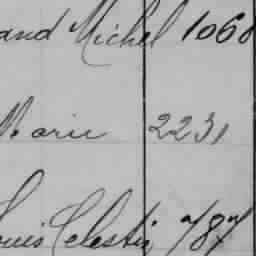 and Michel 1060
Marie 2231
Louis Celestin 787